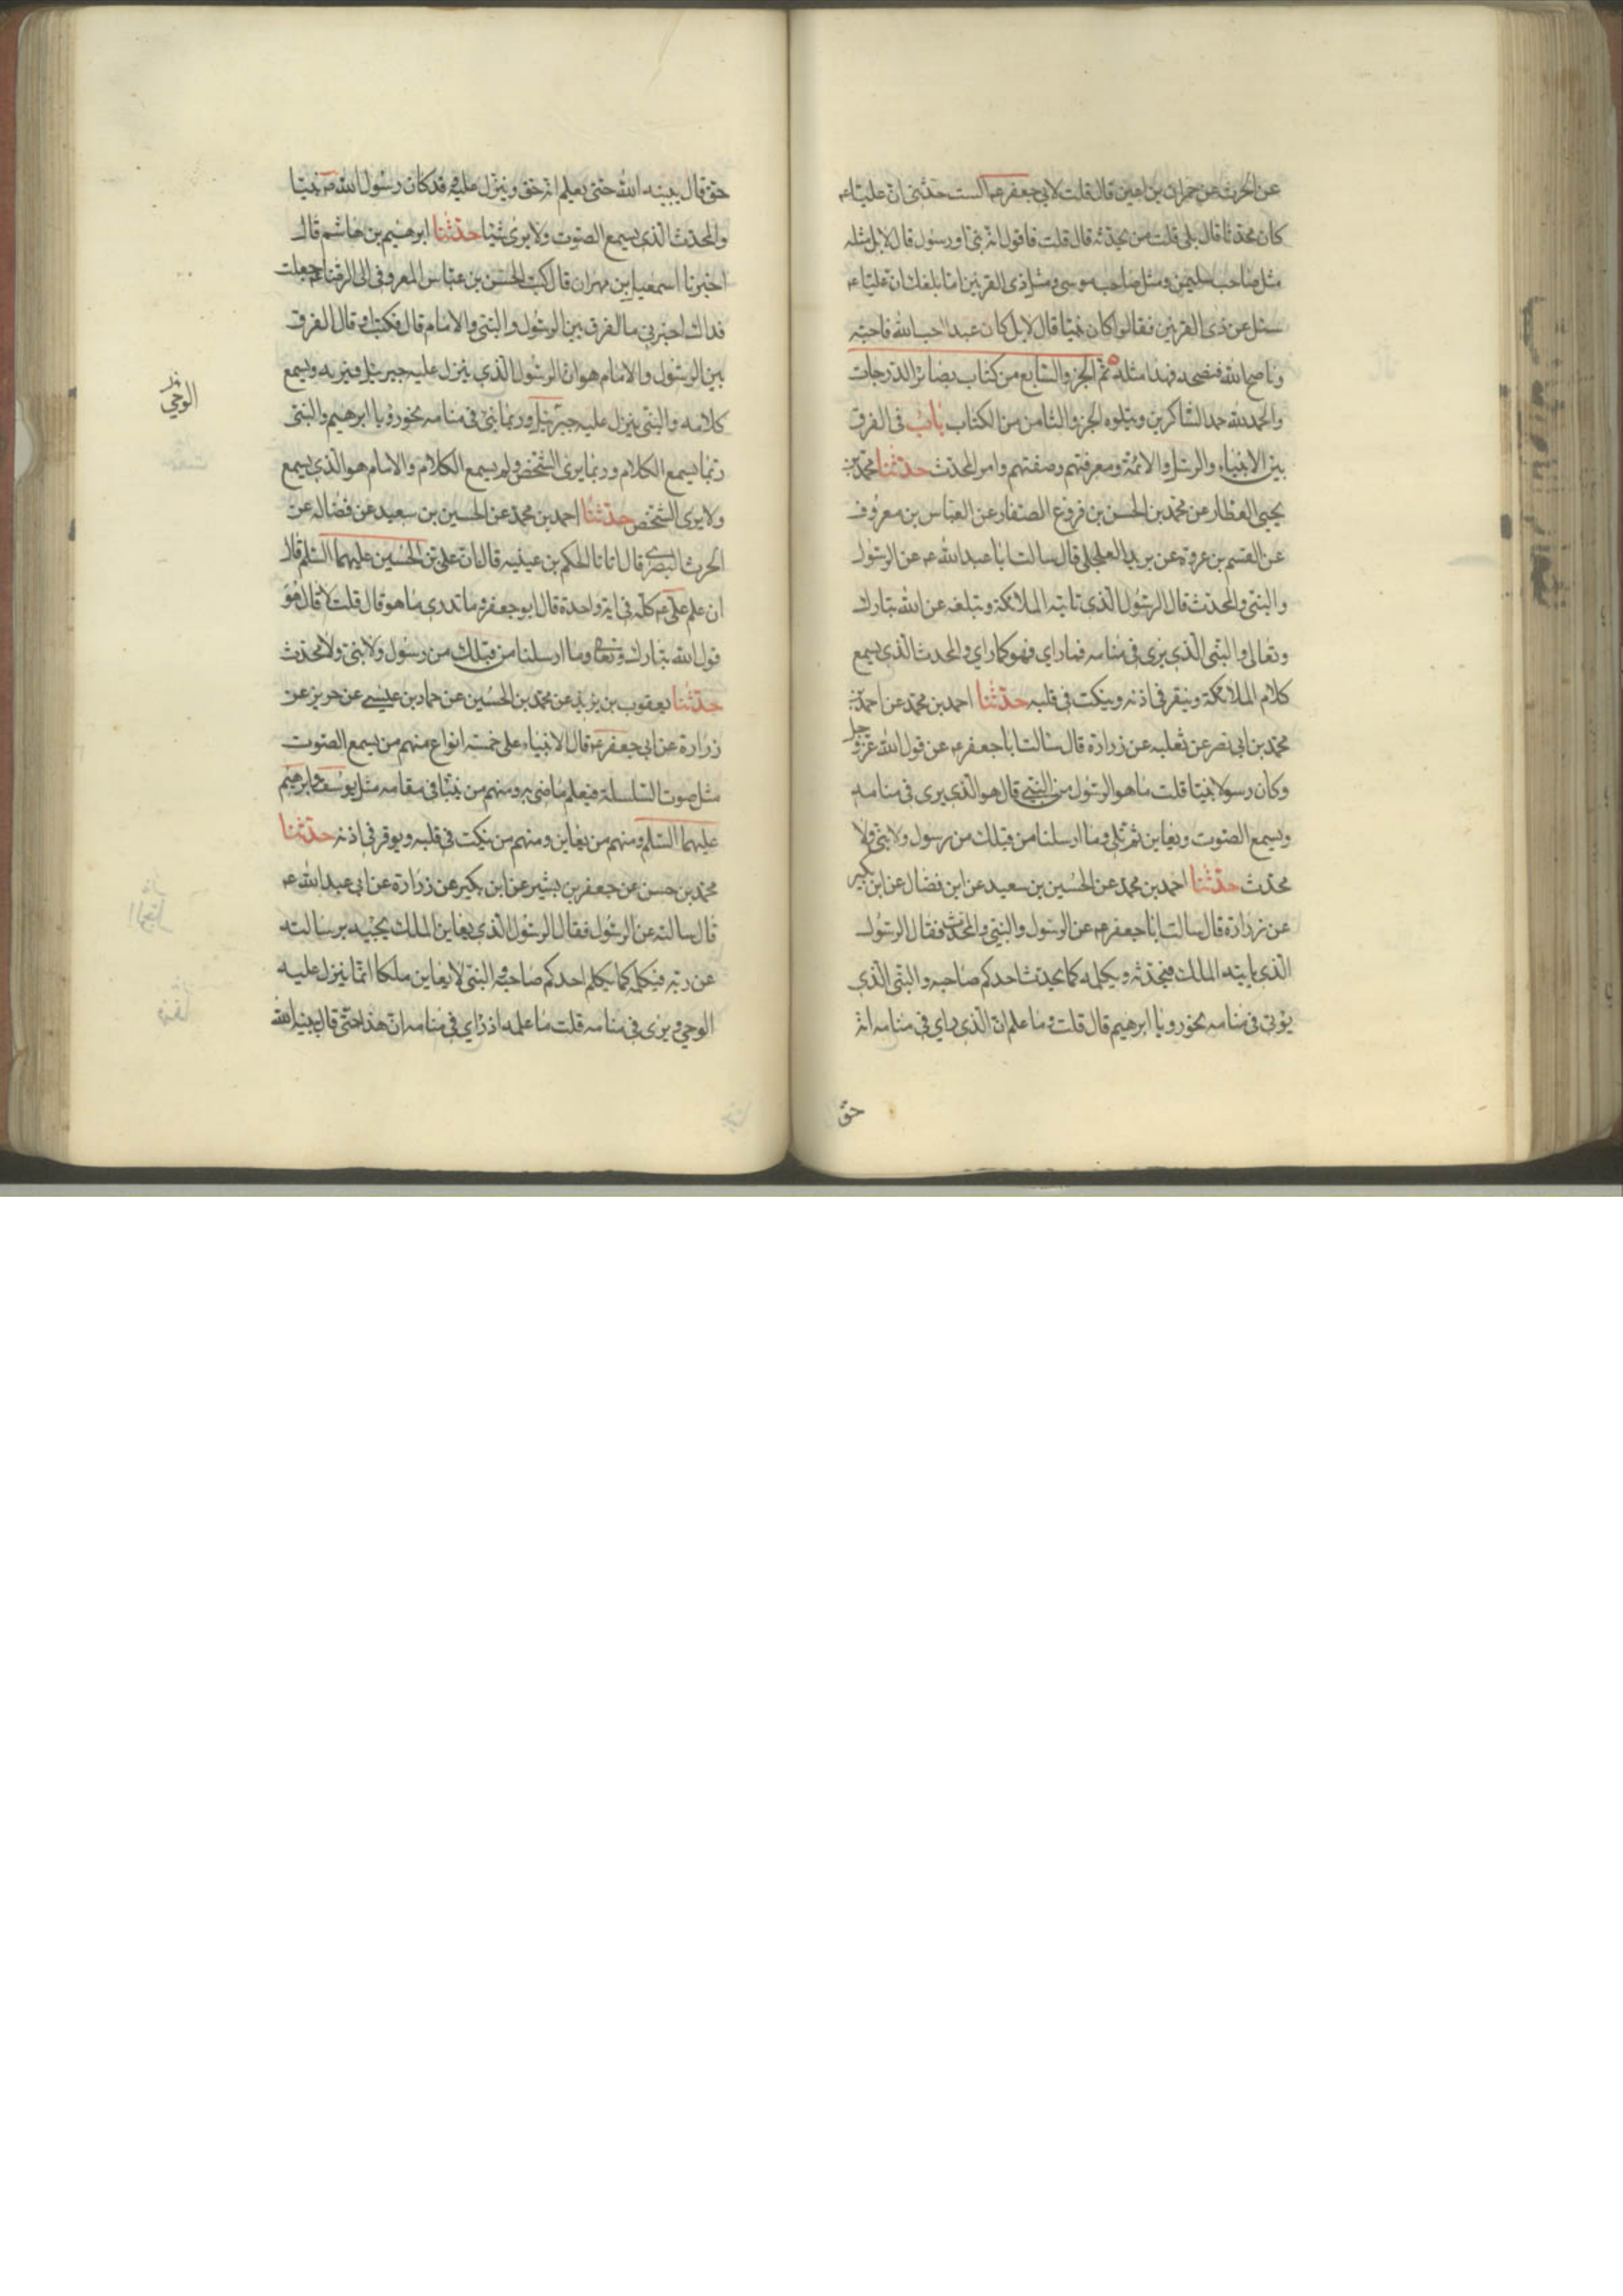 عن الحرث عن حمران بن اعين قال قلت لابي جعفر ع الست حدثني ان عليا ع
كان محدثا قال بلى قلت من يحدثه قال قلت فاقول انه نبي او رسول قال لا بل مثله
مثل صاحب سليمن ومثل صاحب موسى ومثل ذي القرنين اما بلغك ان عليا ع
سئل عن ذي القرنين فقالوا كان نبيا قال لا بل كان عبدا احب الله فاحبه
وناصح الله فنصحه فهذا مثله تم الجزو السابع من كتاب بصائر الدرجات
والحمد لله حمد الشاكرين ويتلوه الجزو الثامن من الكتاب باب في الفرق
بين الانبياء والرسل والائمة ومعرفتهم وصفتهم وامر المحدث حدثنا محمد بن
يحيى العطار عن محمد بن الحسن بن فروخ الصفار عن العباس بن معروف
عن القسم بن عروة عن بريد العجلي قال سالت ابا عبد الله ع عن الرسول
والنبي والمحدث قال الرسول الذي تاتيه الملائكة وتبلغه عن الله تبارك
وتعالى والنبي الذي يرى في منامه فما راي فهو كما راي والمحدث الذي يسمع
كلام الملائكة وينقر في اذنه وينكت في قلبه حدثنا احمد بن محمد عن احمد بن
محمد بن ابي نصر عن ثعلبه عن زرارة قال سالت ابا جعفر ع عن قول الله عز وجل
وكان رسولا نبيا قلت ما هو الرسول من النبي قال هو الذي يرى في منامه
ويسمع الصوت ويعاين ثم تلى وما ارسلنا من قبلك من رسول ولا نبي ولا
محدث حدثنا احمد بن محمد عن الحسين بن سعيد عن ابن فضال عن ابن بكير
عن زرارة قال سالت ابا جعفر ع عن الرسول والنبي والمحدث فقال الرسول
الذي ياتيه الملك فيحدثه ويكلمه كما يحدث احدكم صاحبه والنبي الذي
يؤتى في منامه نحو رويا ابرهيم قال قلت وما علم ان الذي راي في منامه انه
حق
حق قال يبينه الله حتى يعلم انه حق وينزل عليه وقد كان رسول الله ص نبيا
والمحدث الذي يسمع الصوت ولا يرى شيئا حدثنا ابرهيم بن هاشم قال
اخبرنا اسمعيل بن مهران قال كتب الحسن بن عباس المعروفي الى الرضا ع جعلت
فداك اخبرني ما الفرق بين الرسول والنبي والامام قال فكتب او قال الفرق
بين الرسول والامام هو ان الرسول الذي ينزل عليه جبرئيل فيريه ويسمع
كلامه والنبي ينزل عليه جبرئيل وربما نبئ في منامه نحو رؤيا ابرهيم والنبي
الوحي
ربما يسمع الكلام وربما يرى الشخص ولم يسمع الكلام والامام هو الذي يسمع
ولا يرى الشخص حدثنا احمد بن محمد عن الحسين بن سعيد عن فضاله عن
الحرث البصري قال اتانا الحكم بن عيينه قال ان علي بن الحسين عليهما السلم قال
ان علم علي ع كله في اية واحدة قال ابو جعفر و ما تدري ما هو قال قلت لا قال هو
قول الله تبارك وتعالى وما ارسلنا من قبلك من رسول ولا نبي ولا محدث
حدثنا يعقوب بن يزيد عن محمد بن الحسين عن حماد بن عيسى عن حريز عن
زرارة عن ابي جعفر ع قال الانبياء على خمسه انواع منهم من يسمع الصوت
مثل صوت السلسلة فيعلم ما ضي به ومنهم من ينبا في مقامه مثل يوسف وابرهيم
عليهما السلم ومنهم من يعاين ومنهم من ينكت في قلبه ويوقر في اذنه حدثنا
محمد بن حسن عن جعفر بن بشير عن ابن بكير عن زرارة عن ابي عبد الله ع
قال سالته عن الرسول فقال الرسول الذي يعاين الملك يجيه برسالته
عن ربه فيكلمه كما يكلم احدكم صاحبه والنبي لا يعاين ملكا انما ينزل عليه
الوحي ويرى في منامه قلت ما علمه اذ راي في منامه ان هذا حق قال يبينه الله